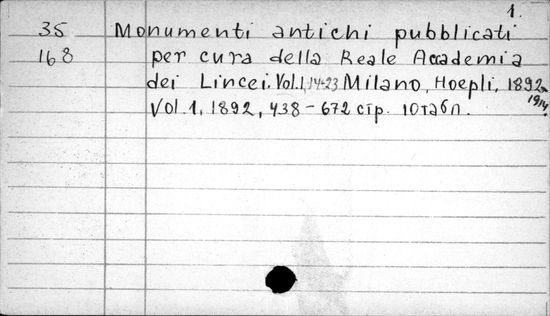 1.
35 Monumenti antichi pubblicati
168 per cura della Reale Accademia
dei Lincei. Vol. 1, 14-23 Milano, Hoepli, 1892-
1914.
Vol. 1, 1892, 438-672 стр. 10 табл.